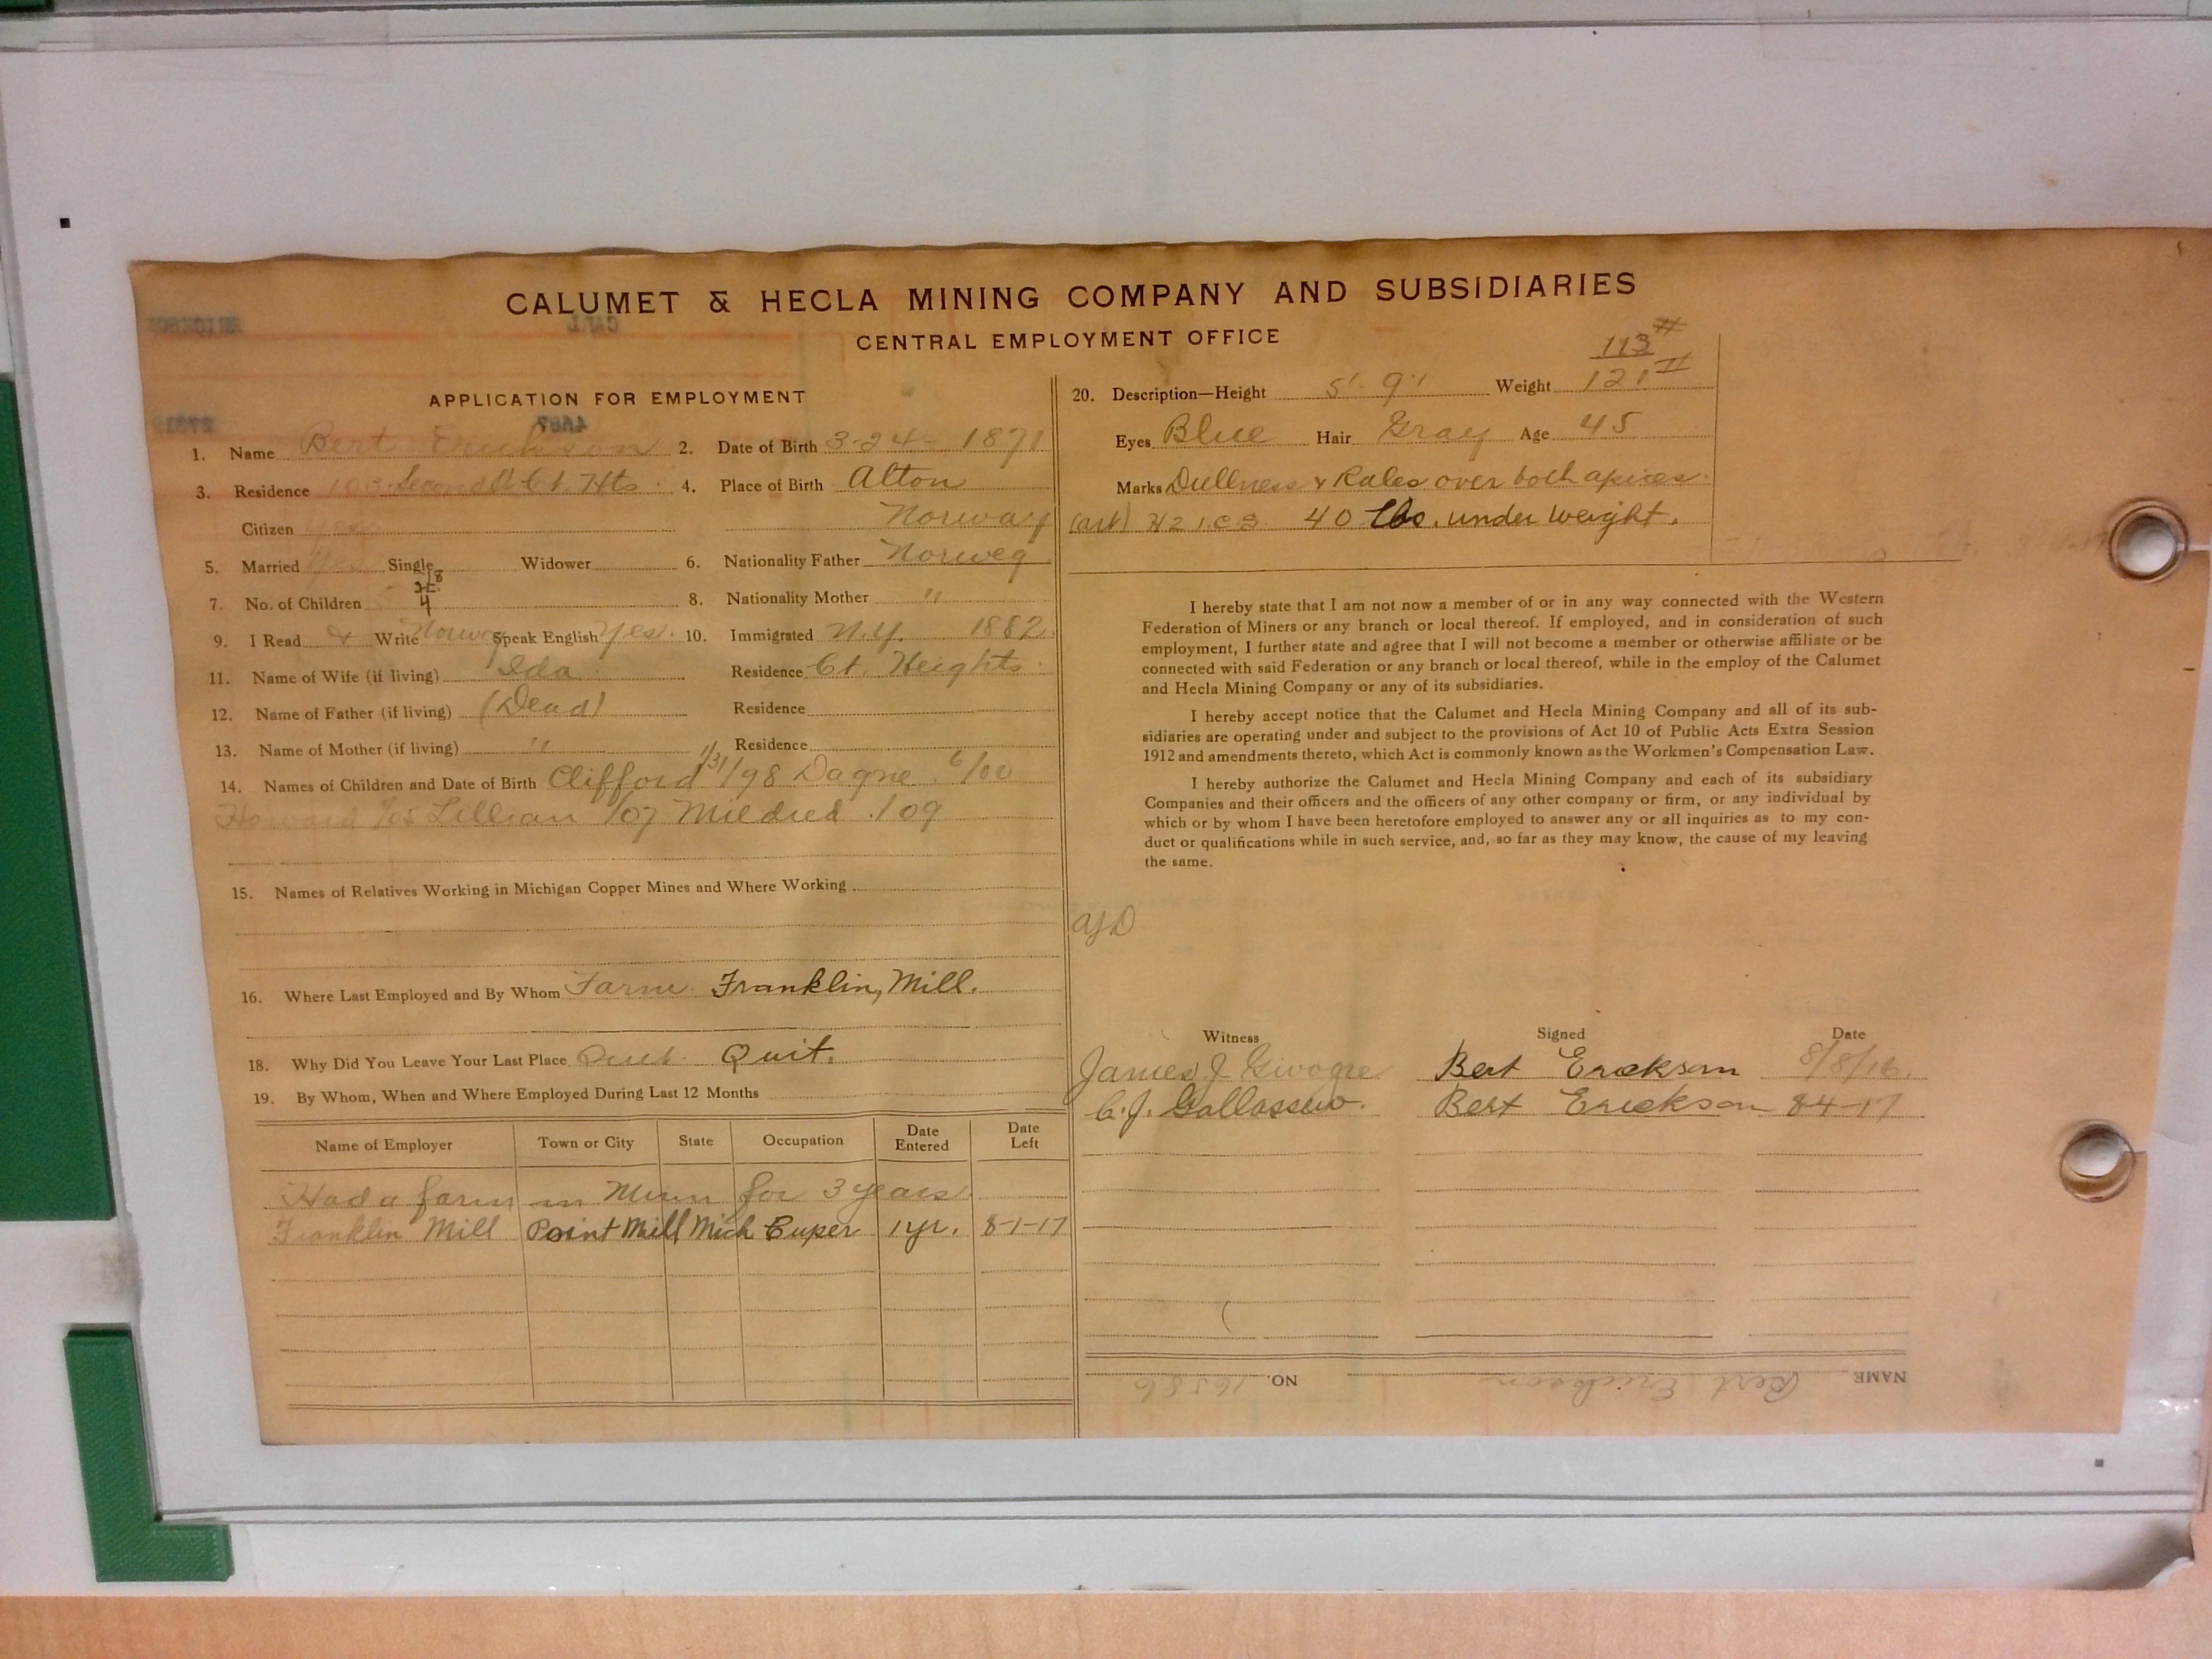 CALUMET & HECLA MINING COMPANY AND SUBSIDIARIES
CENTRAL EMPLOYMENT OFFICE
APPLICATION FOR EMPLOYMENT
1. Name Bert Erickson 2. Date of Birth 3-24-1871
3. Residence 103 Second St Ct. Hts. 4. Place of Birth Alton
Citizen yes Norway
5. Married Yes Single Widower 6. Nationality Father Norweg
7. No. of Children 4 8. Nationality Mother "
9. I Read & Write Norweg Speak English Yes. 10. Immigrated N.Y. 1882
11. Name of Wife (if living) Ida Residence Ct. Heights.
12. Name of Father (if living) (Dead) Residence
13. Name of Mother (if living) " Residence
14. Names of Children and Date of Birth Clifford 1/31/98 Dagne 6/00
Howard /05 Lillian /07 Mildred /09
15. Names of Relatives Working in Michigan Copper Mines and Where Working
16. Where Last Employed and By Whom Farm Franklin, Mill.
18. Why Did You Leave Your Last Place Quit. Quit.
19. By Whom, When and Where Employed During Last 12 Months
Name of Employer Town or City State Occupation Date Entered Date Left
Had a farm in Minn for 3 years
Franklin Mill Point Mill Mich Cuper 1 yr. 8-1-17
113 #
20. Description—Height 5'-9" Weight 121 #
Eyes Blue Hair Gray Age 45
Marks Dullness & Rales over both apices
40 lbs. under weight.
I hereby state that I am not now a member of or in any way connected with the Western
Federation of Miners or any branch or local thereof. If employed, and in consideration of such
employment, I further state and agree that I will not become a member or otherwise affiliate or be
connected with said Federation or any branch or local thereof, while in the employ of the Calumet
and Hecla Mining Company or any of its subsidiaries.
I hereby accept notice that the Calumet and Hecla Mining Company and all of its sub-
sidiaries are operating under and subject to the provisions of Act 10 of Public Acts Extra Session
1912 and amendments thereto, which Act is commonly known as the Workmen's Compensation Law.
I hereby authorize the Calumet and Hecla Mining Company and each of its subsidiary
Companies and their officers and the officers of any other company or firm, or any individual by
which or by whom I have been heretofore employed to answer any or all inquiries as to my con-
duct or qualifications while in such service, and, so far as they may know, the cause of my leaving
the same.
Witness Signed Date
James J. Bert Erickson 8/8/16.
C. J. Bert Erickson 8-4-17
NAME Bert Erickson NO. 16586